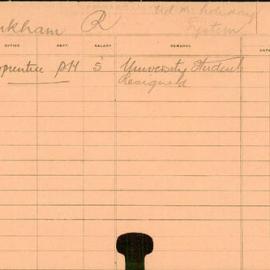 nkham R
holiday
System
OFFICE DEPT. SALARY REMARKS
pprentice PH 5 University Student
resigned